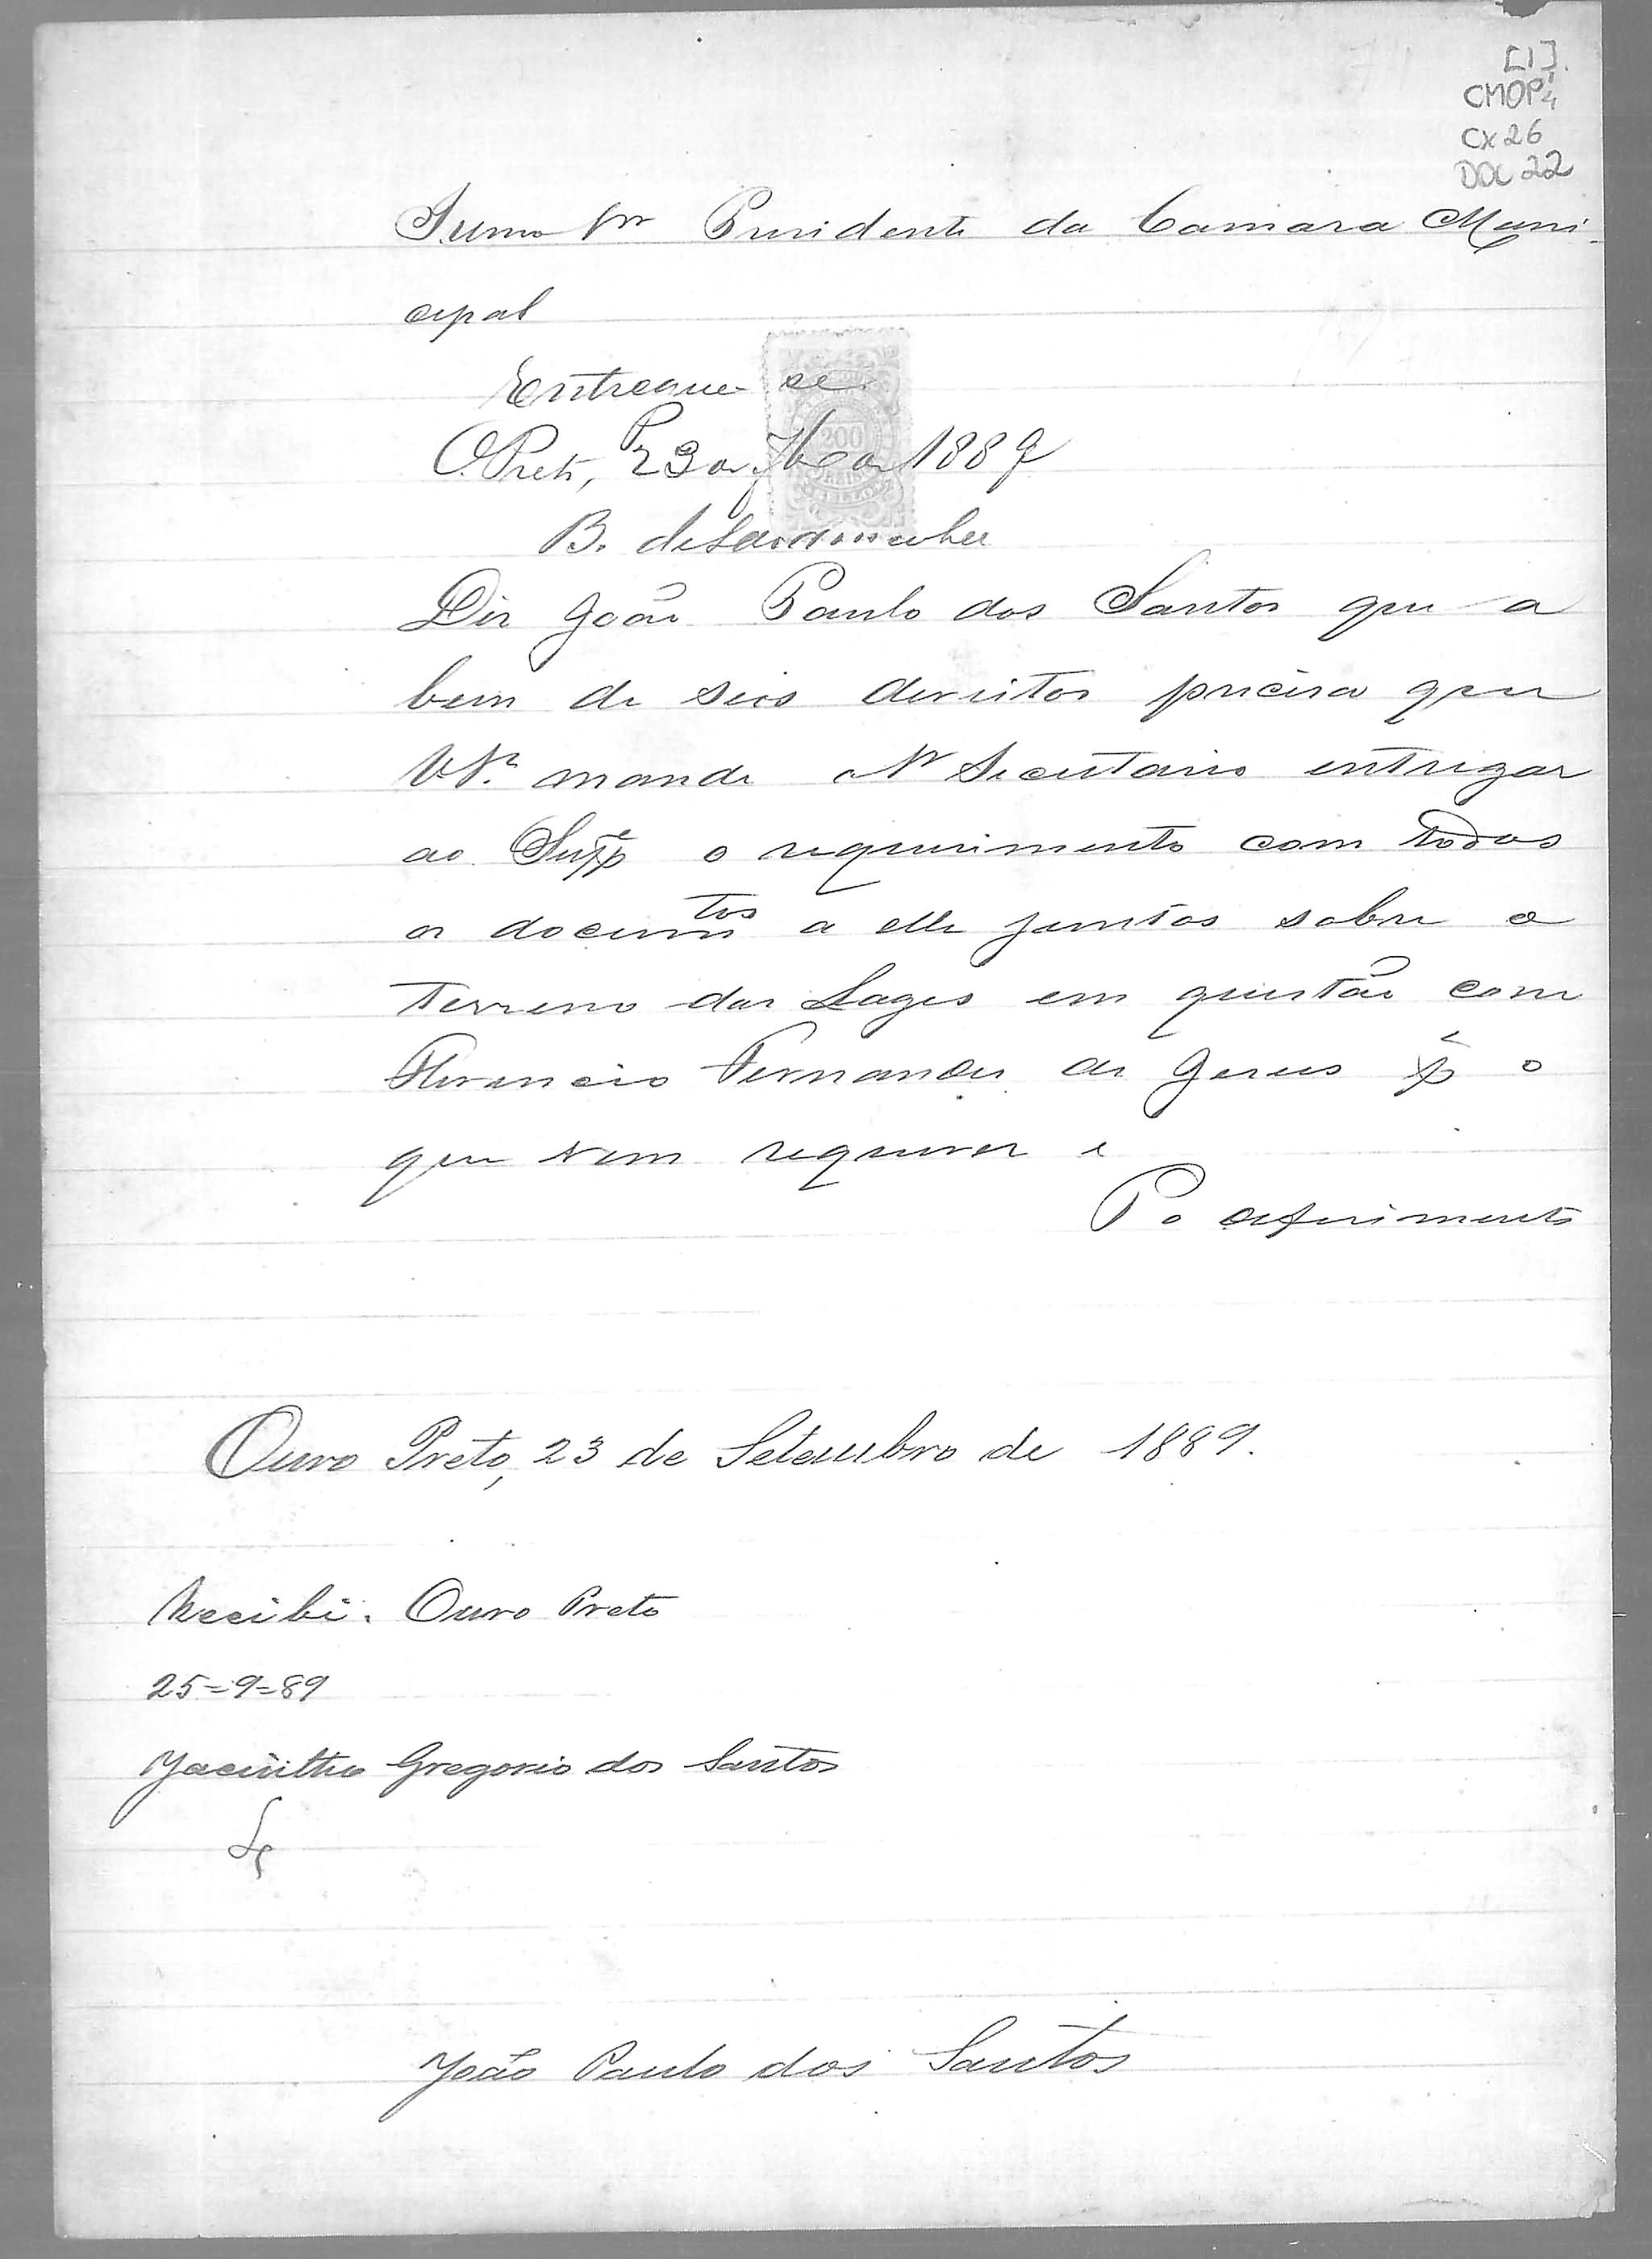 [1]
CMOP 4
CX 26
DOC 22
Illmo Snr Presidente da Camara Muni-
cipal
Entregue-se.
O. Preto, 23 de 7bro de 1889
200
REIS
B. de Saramenha
Diz João Paulo dos Santos que a
bem de seos dereitos precisa que
VSa. mande o Snr Secretario entregar
ao Suppe o requerimento com todos
os documtos a elle juntos sobre o
terreno das Lages em questão com
Florencio Fernandes de Jesus p o
que vem requerer e
P. deferimento
Ouro Preto, 23 de Setembro de 1889.
Recibi. Ouro Preto
25=9=89
Jacintho Gregorio dos Santos
João Paulo dos Santos